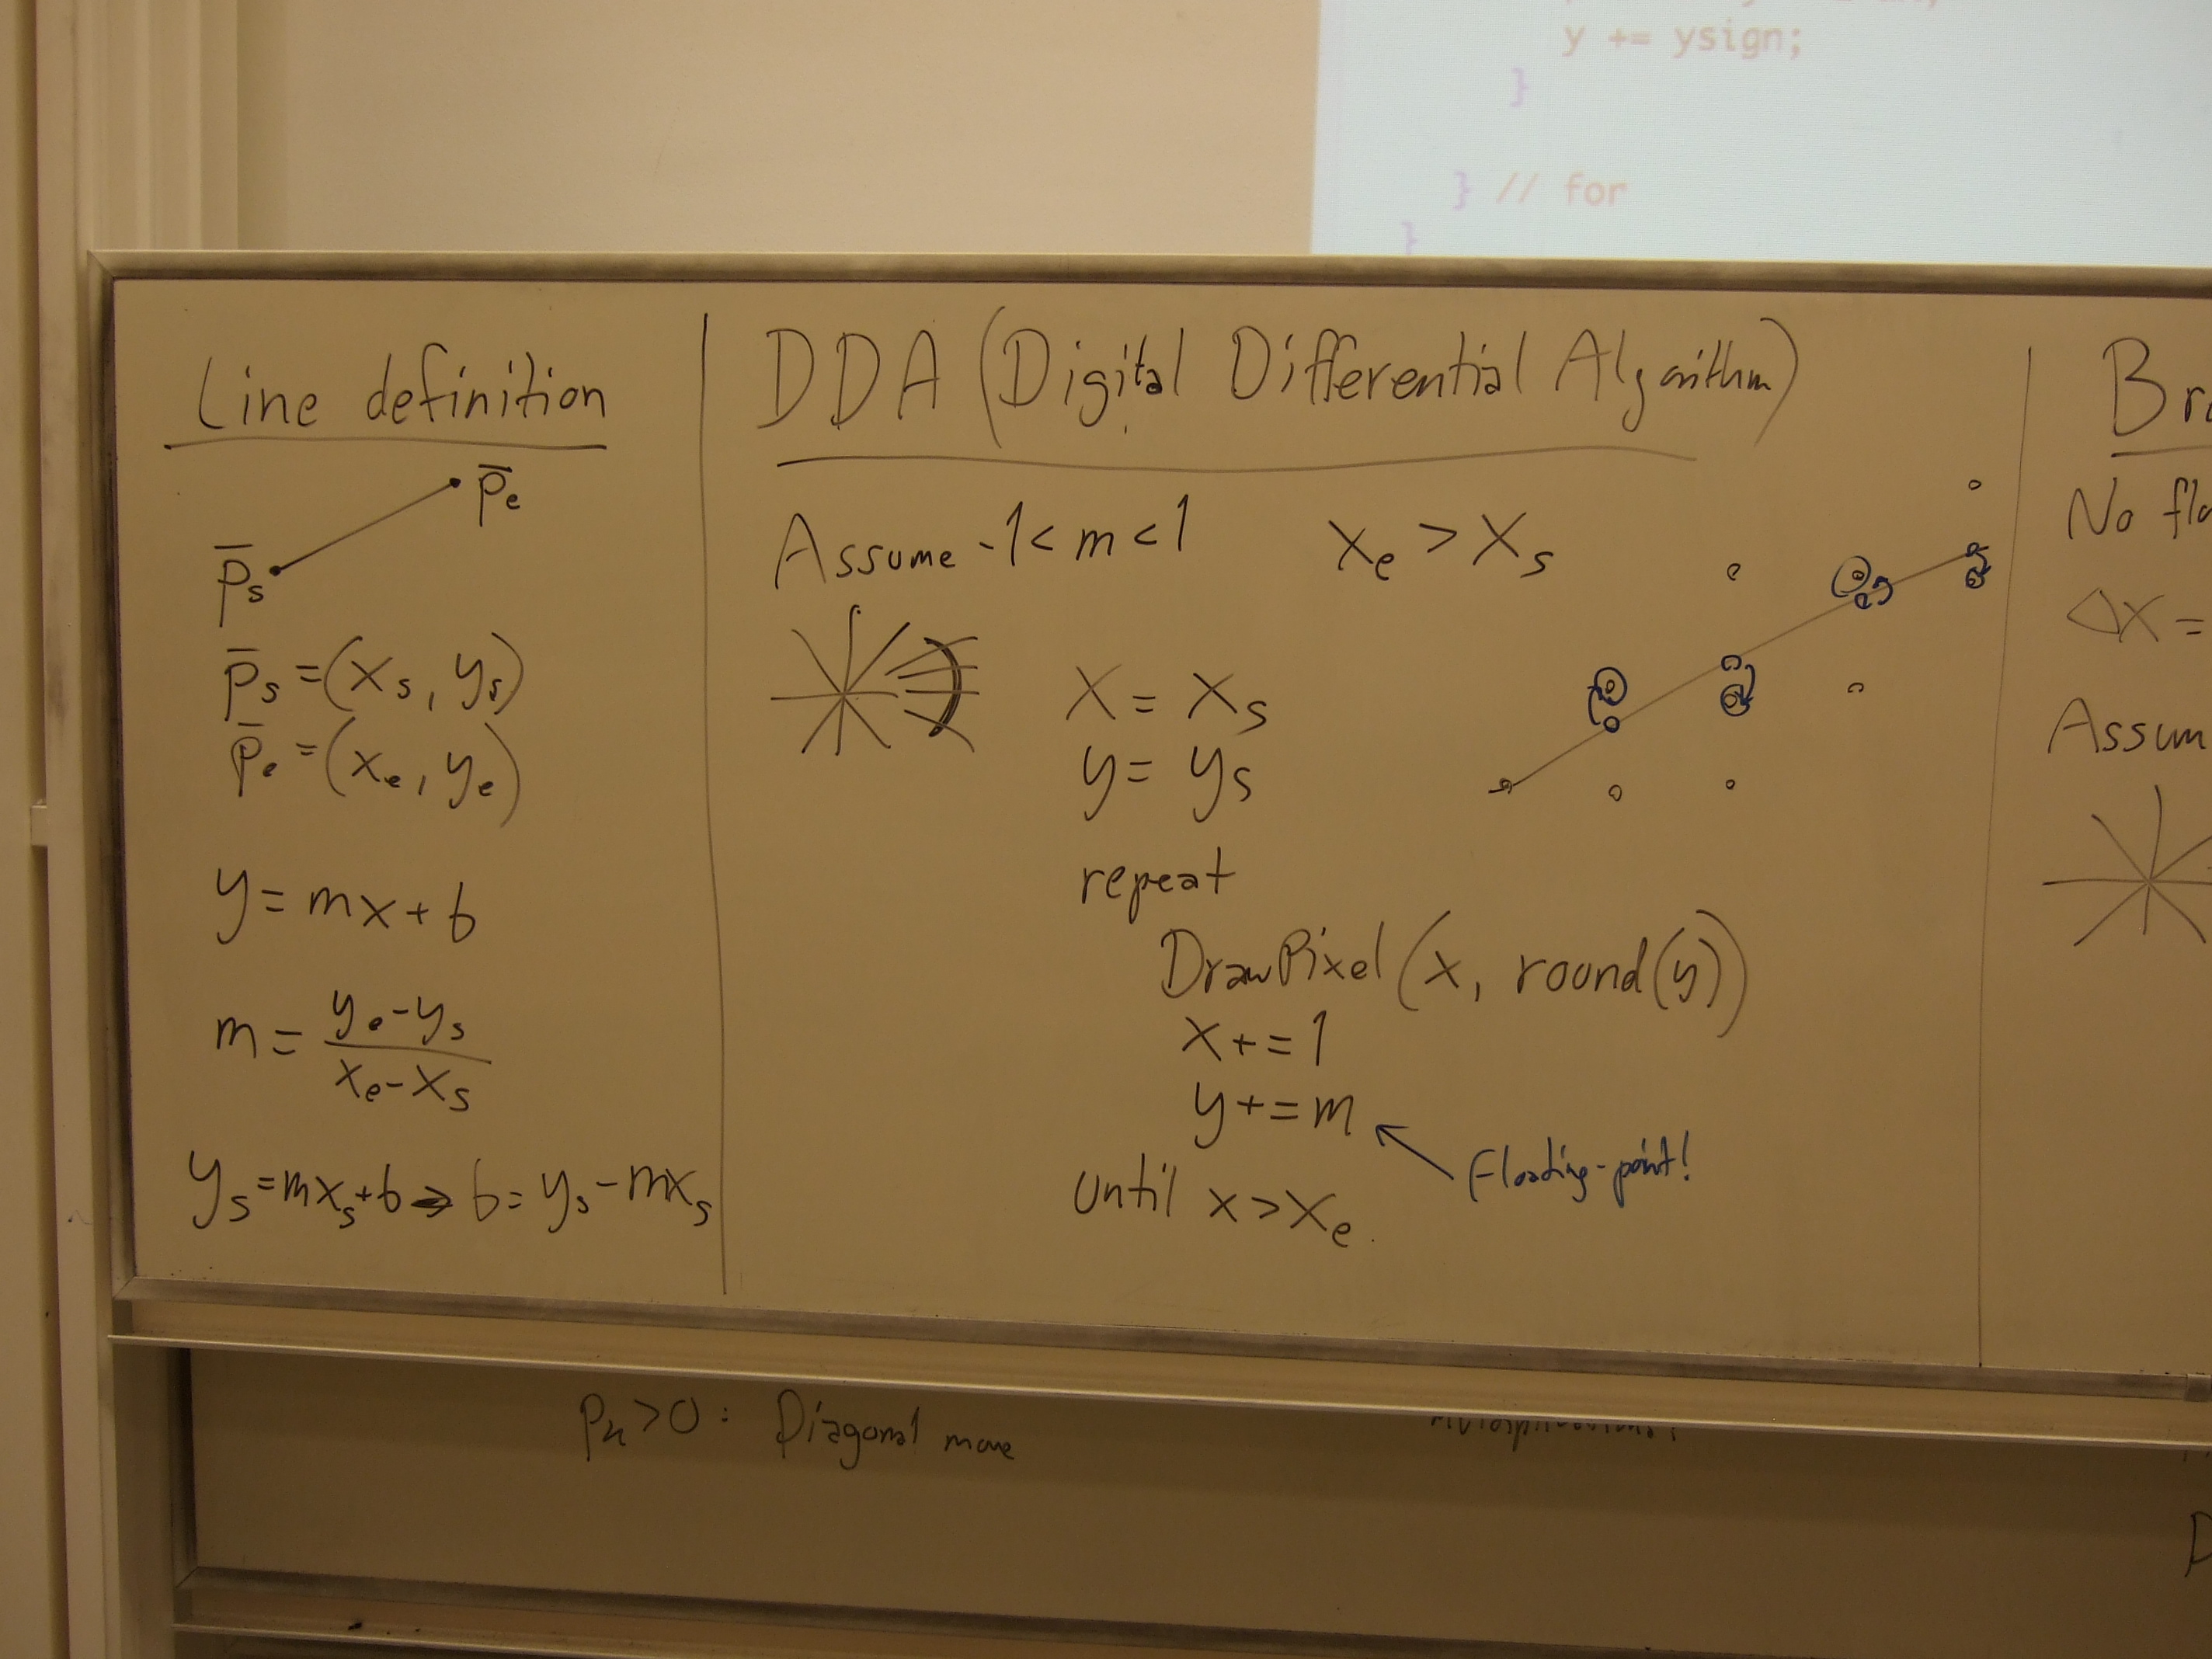 y += ysign;
}
} // for
}
Line definition
p̄e
p̄s
p̄s = (xs, ys)
p̄e = (xe, ye)
y = mx + b
m = (ye - ys) / (xe - xs)
ys = mxs + b → b = ys - mxs
DDA (Digital Differential Algorithm)
Assume -1 < m < 1 xe > xs
x = xs
y = ys
repeat
DrawPixel (x, round(y))
x += 1
y += m
Floating-point!
until x > xe
No
Δx =
pk > 0 : Diagonal move